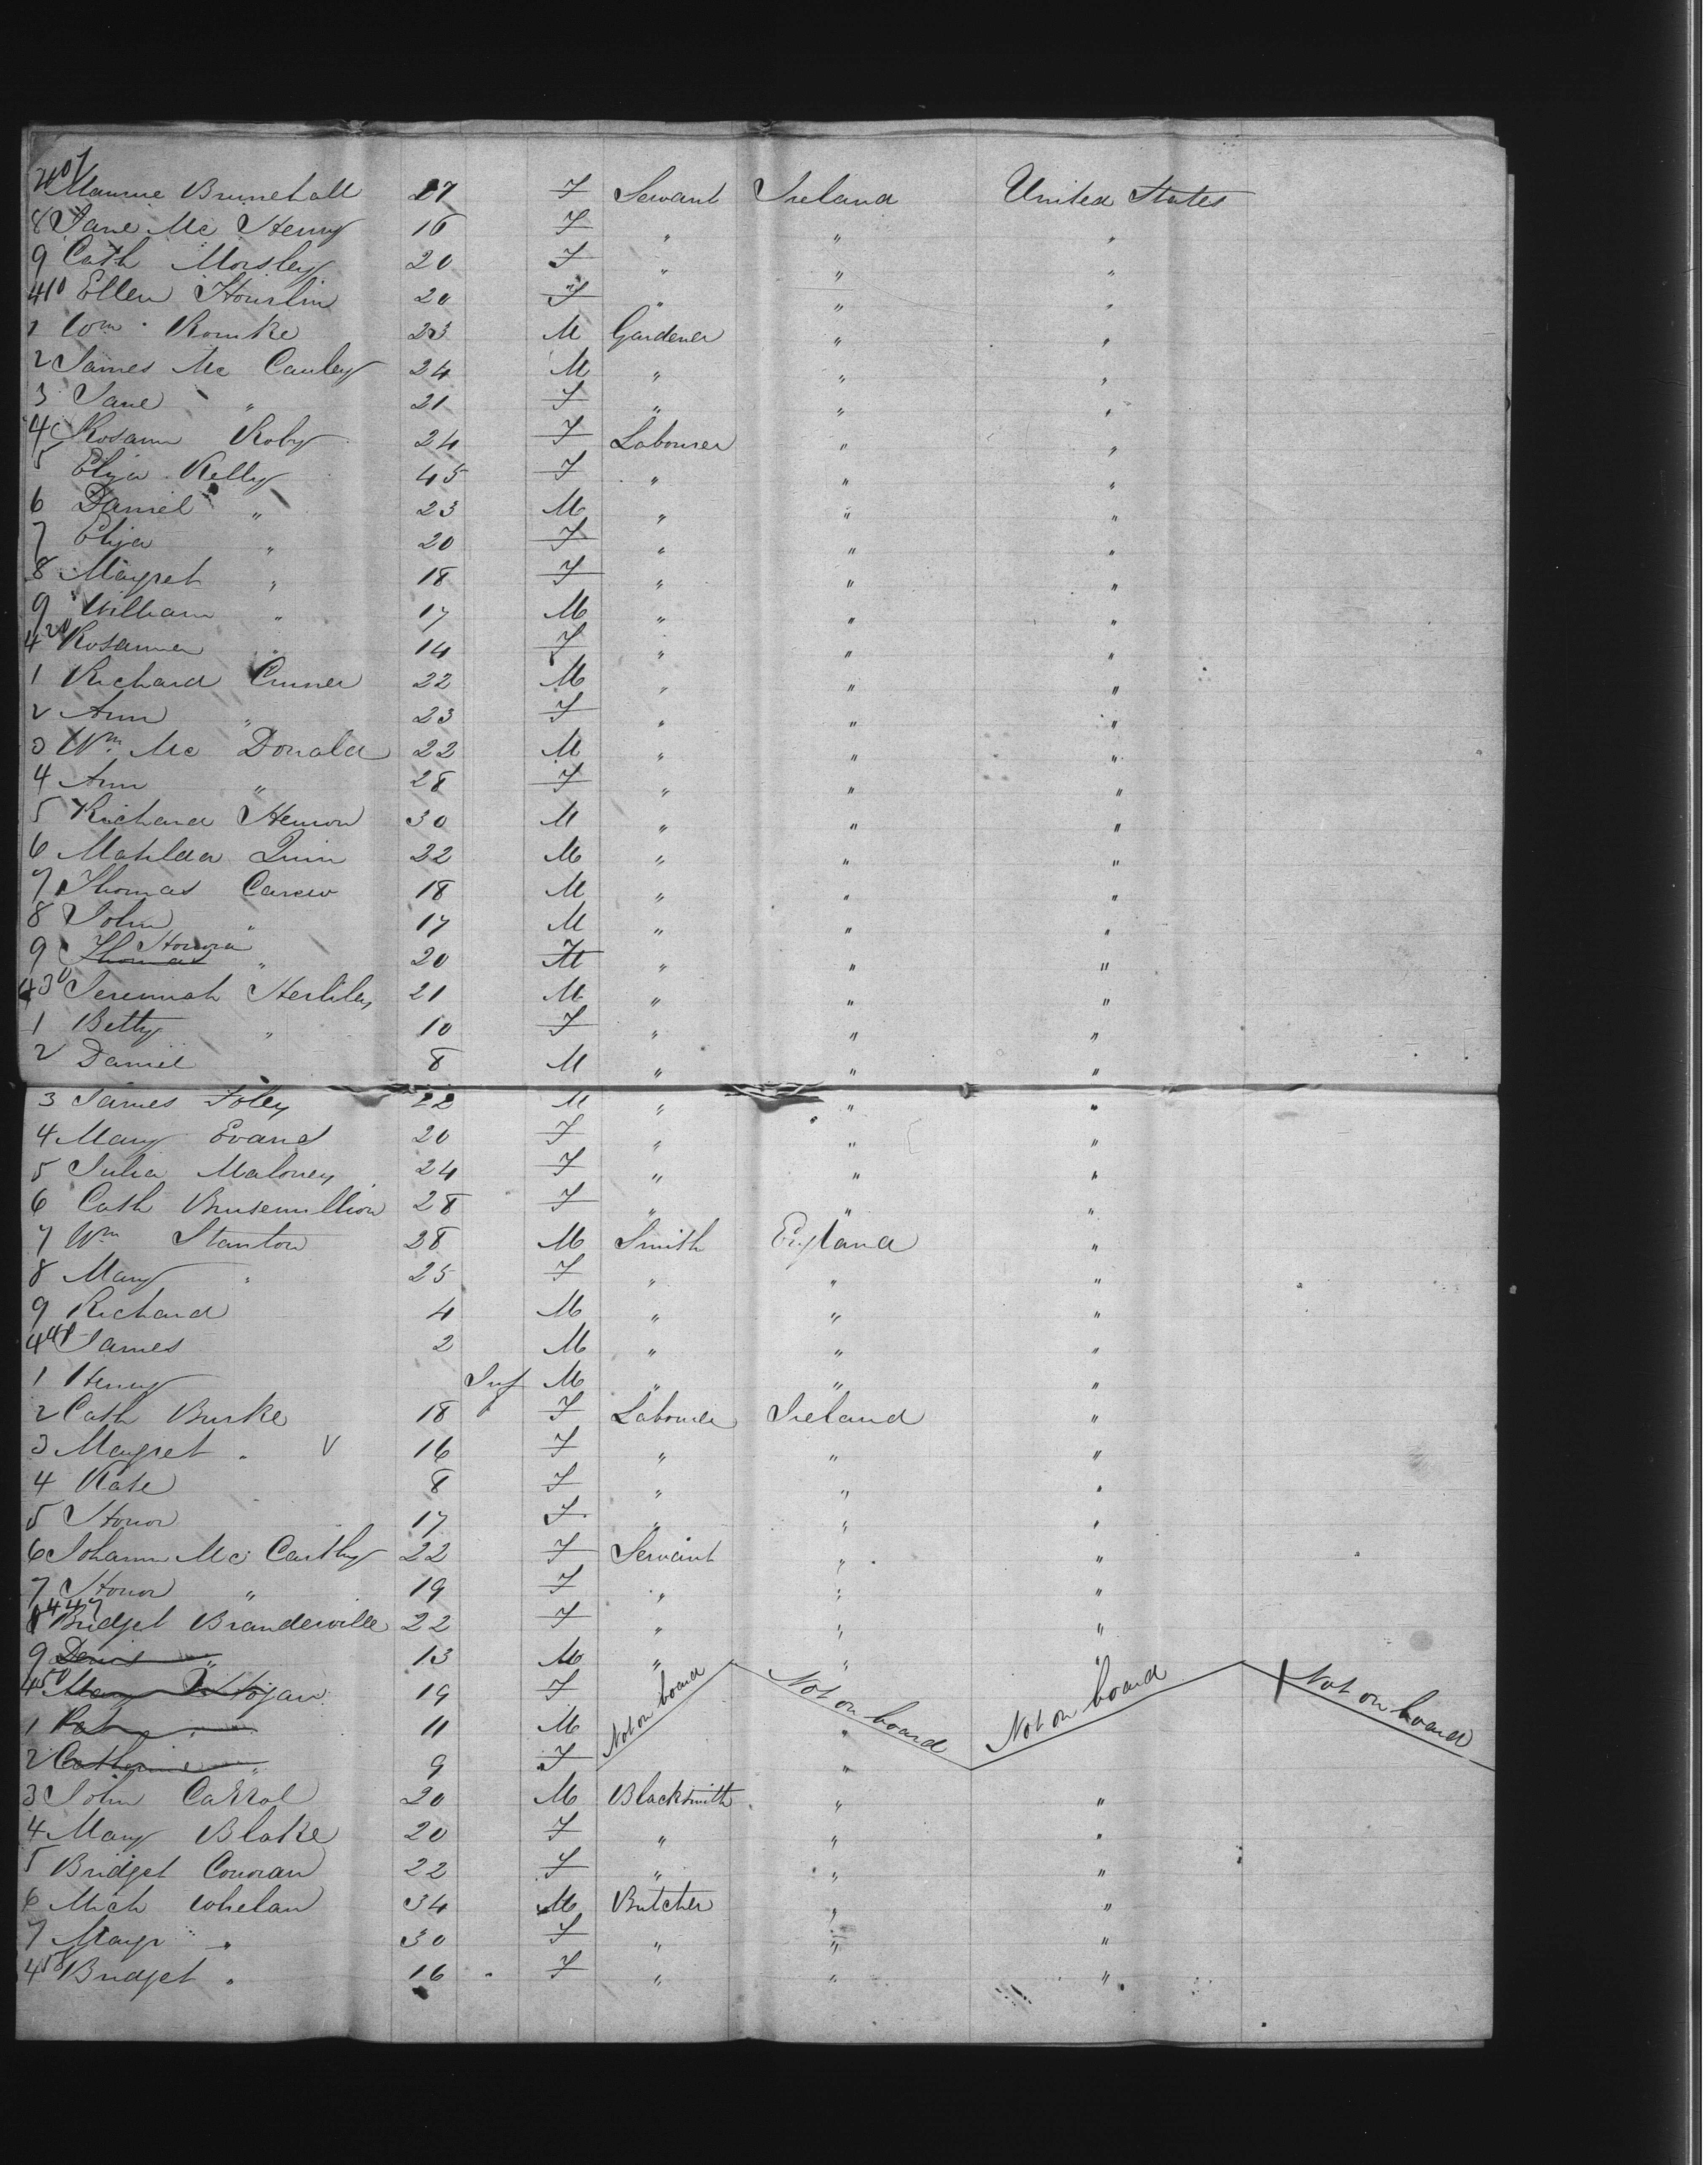 407 Maurne Brunehall 27 F Servant Ireland United States
8 Jane Mc Henry 16 F " " "
9 Cath Morsley 20 F " " "
410 Ellen Hourlin 20 F " " "
1 Wm Rourke 23 M Gardener " "
2 James Mc Cauley 24 M " " "
3 Jane " 21 F " " "
4 Rosann Roby 24 F Labourer " "
5 Eliza Kelly 45 F " " "
6 Daniel " 23 M " " "
7 Eliza " 20 F " " "
8 Margret " 18 F " " "
9 William " 17 M " " "
420 Rosanna 14 F " " "
1 Richard Cruner 22 M " " "
2 Ann " 23 F " " "
3 Wm Mc Donald 22 M " " "
4 Ann " 28 F " " "
5 Richard Henion 30 M " " "
6 Matilda Quin 22 M " " "
7 Thomas Carew 18 M " " "
8 John " 17 M " " "
9 Thomas Honora " 20 F " " "
430 Jeremiah Herlihy 21 M " " "
1 Betty " 10 F " " "
2 Daniel 8 M " " "
3 James Foley 22 M " " "
4 Mary Evans 20 F " " "
5 Julia Maloney 24 F " " "
6 Cath Brusemillion 28 F " " "
7 Wm Stanton 28 M Smith England "
8 Mary " 25 F " " "
9 Richard 4 M " " "
440 James 2 M " " "
1 Henry Inf M " " "
2 Cath Burke 18 F Labourer Ireland "
3 Margret " V 16 F " " "
4 Kate 8 F " " "
5 Honor 17 F " " "
6 Johann Mc Carthy 22 F Servant " "
7 Honor " 19 F " " "
8 447 Bridget Branderville 22 F " " "
9 Denis " 13 M " " "
450 Mary Hogan 19 F Not on board Not on board Not on board Not on board
1 Pat " 11 M "
2 Catherine " 9 F "
3 John Carrol 20 M Blacksmith " "
4 Mary Blake 20 F " " "
5 Bridget Conoran 22 F " " "
6 Mich Whelan 34 M Butcher " "
7 Margr " 30 F " " "
458 Bridget " 16 F " " "